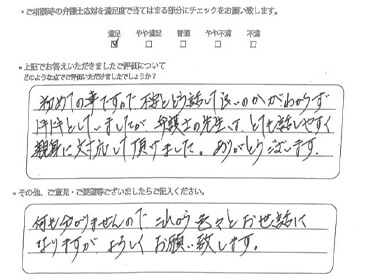 ・ご相談時の弁護士応対を満足度で当てはまる部分にチェックをお願い致します。
満足 やや満足 普通 やや不満 不満
・上記でお答えいただきましたご評価について
どのような点でご評価いただけましたでしょうか?
初めての事ですので 不安とどう話して良いのかがわからず
ドキドキしていましたが 弁護士の先生は、とても話しやすく
親身に対応して頂けました。ありがとうございます。
・その他、ご意見・ご要望等ございましたらご記入ください。
何も分かりませんので これから色々とお世話に
なりますが よろしくお願い致します。